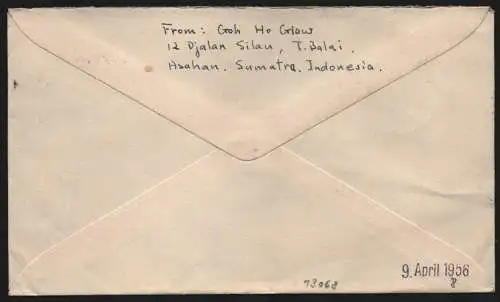 From: Goh Ho Giaw
12 Djalan Silau, T. Balai.
Asahan. Sumatra. Indonesia.
9. April 1956
8
73068